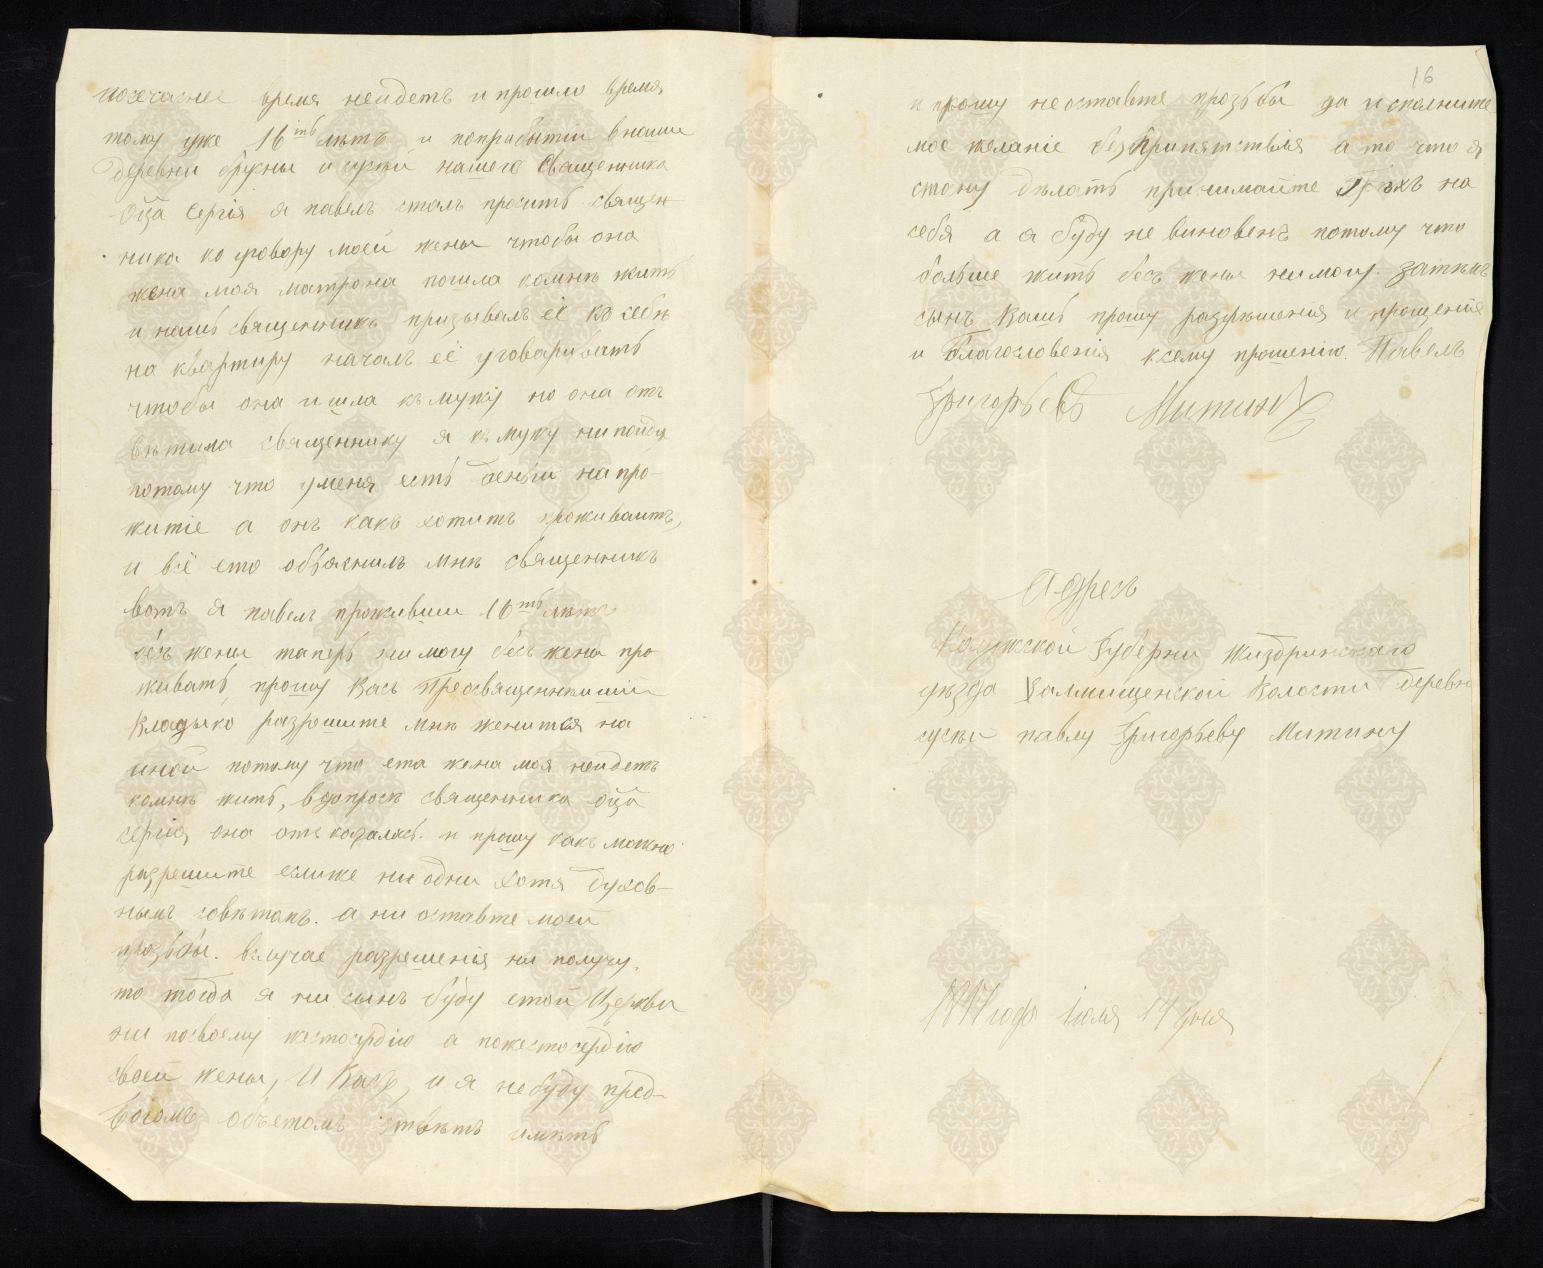 посечаснее время нейдетъ и прошло время
тому уже 16 ть летъ и поприбытіи внаши
деревни бруны и суски нашего священника
оца Сергія я павелъ сталъ просить священ-
ника ко уговору моей жены чтобы она
жена моя матрона пошла комнѣ жить
и нашъ священникъ призывалъ её къ себѣ
на квартиру началъ её уговаривать
чтобы она ишла къ мужу но она отъ
вѣтила священнику я къ мужу ни пойду
потому что уменя есть деньги на про-
житіе а онъ какъ хотитъ проживаитъ,
и всё ето объяснилъ мнѣ священникъ
вотъ я павелъ проживши 16 ть лѣтъ
безъ жены таперь нимогу безъ жены про
живать, прошу Васъ Преосвященнѣйшій
Владыко разрешите мнѣ женится на
иной потому что ета жена моя неидетъ
комнѣ жить, вдопросѣ священника оца
сергія она отъ казалась. и прошу какъ можно
разрешите еслиже ни одни хотя духов-
нымъ совѣтомъ. а ни оставте моей
прозьбы. вслучае разрешенія ни получу,
то тогда я ни сынъ буду етой Церкви
ни посвоему жестосердію а пожестосердію
своей жены, и Васъ, и я небуду пред-
богомъ объетомъ отвѣтъ имѣть
16
и прошу неоставте прозьбы да исполните
мое желаніе безприпятствія а то что я
стану дѣлать принимайте грѣхъ на
себя а я буду не виновенъ потому что
больше жить безъ жены нимогу. Затѣмъ
сынъ Вашъ прошу разрѣшенія и прощенія
и благословенія ксему прошению. Павелъ
Григорьевъ Митинъ
Адресъ
Калужской Губерни Жиздринскаго
уѣзда Холмищенской Волости Деревни
суски павлу Григорьеву Митину
1917 года Іюля 14 дня